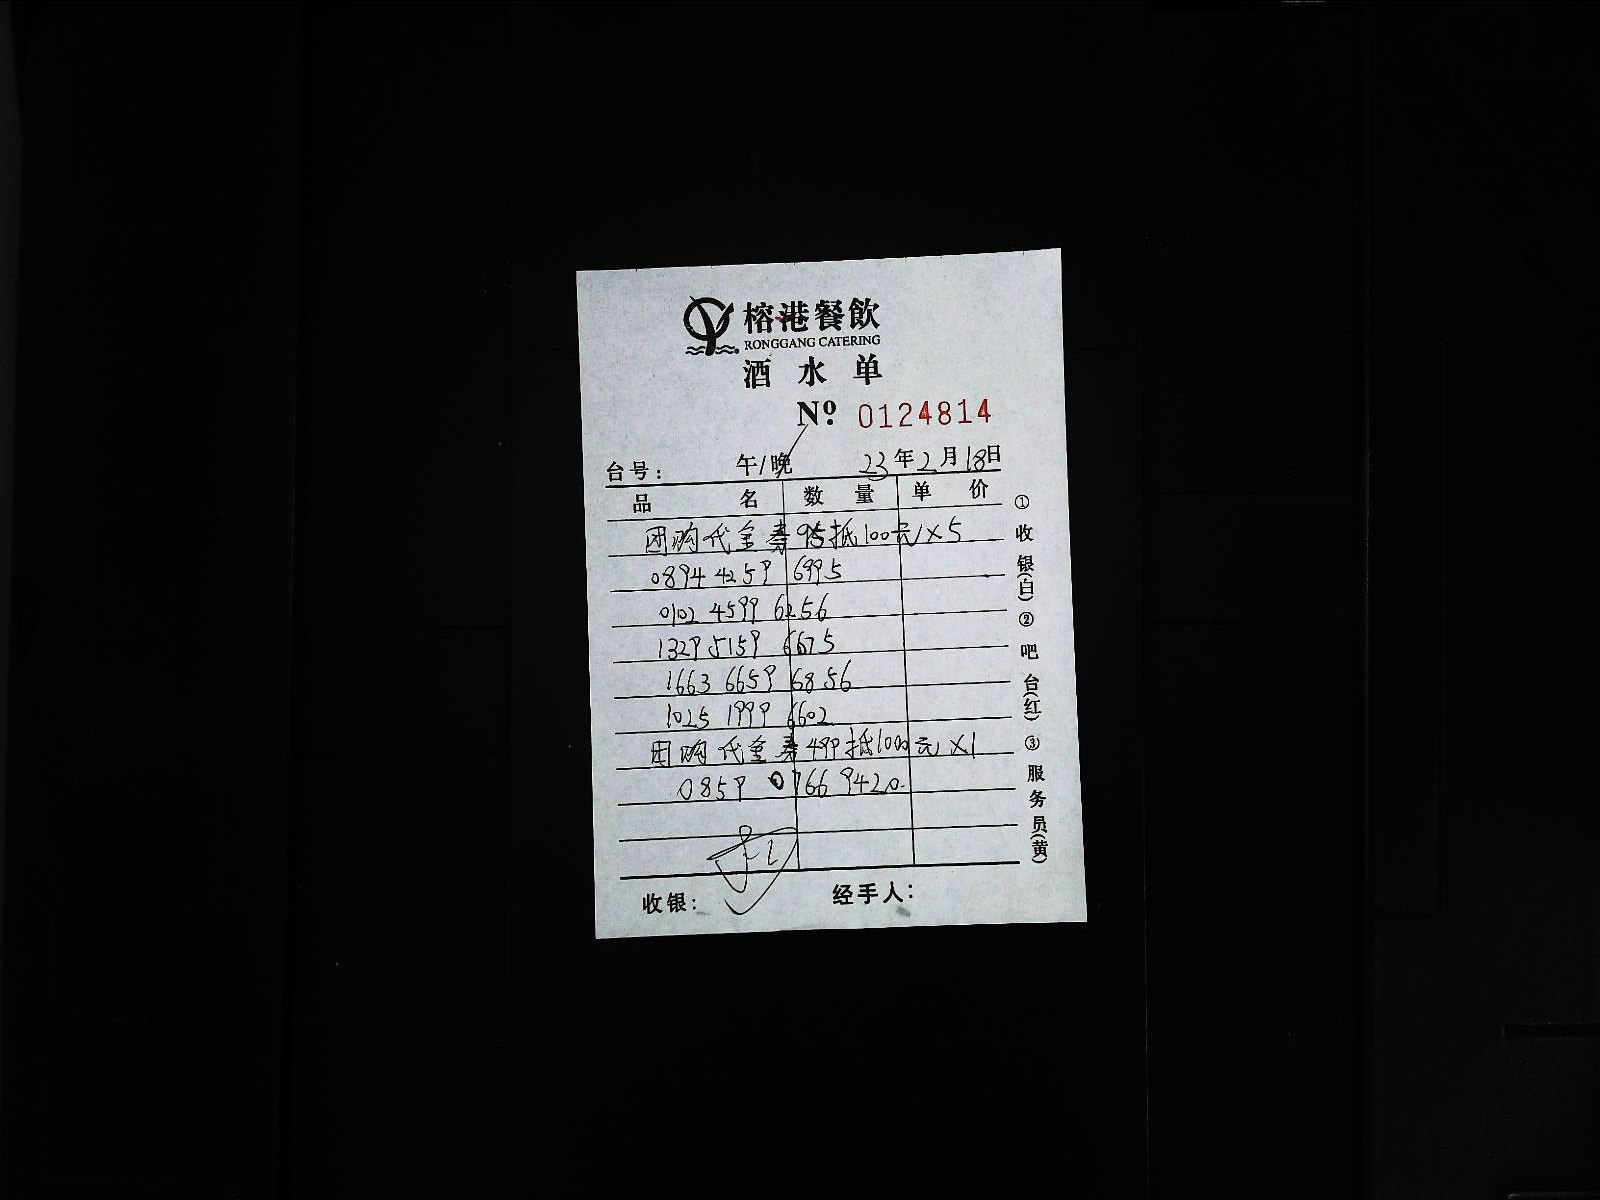 榕港餐飲
RONGGANG CATERING
酒水单
Nº 0124814
台号: 午/晚 23年2月18日
品名 数量 单价
团购代金券95抵100元/×5
0894 4259 6995
0102 4599 6256
1329 5159 6675
1663 6659 6856
1025 1999 6602
团购代金券499抵1000元 ×1
0859 0766 9420
收银: 经手人:
①收银(白)②吧台(红)③服务员(黄)